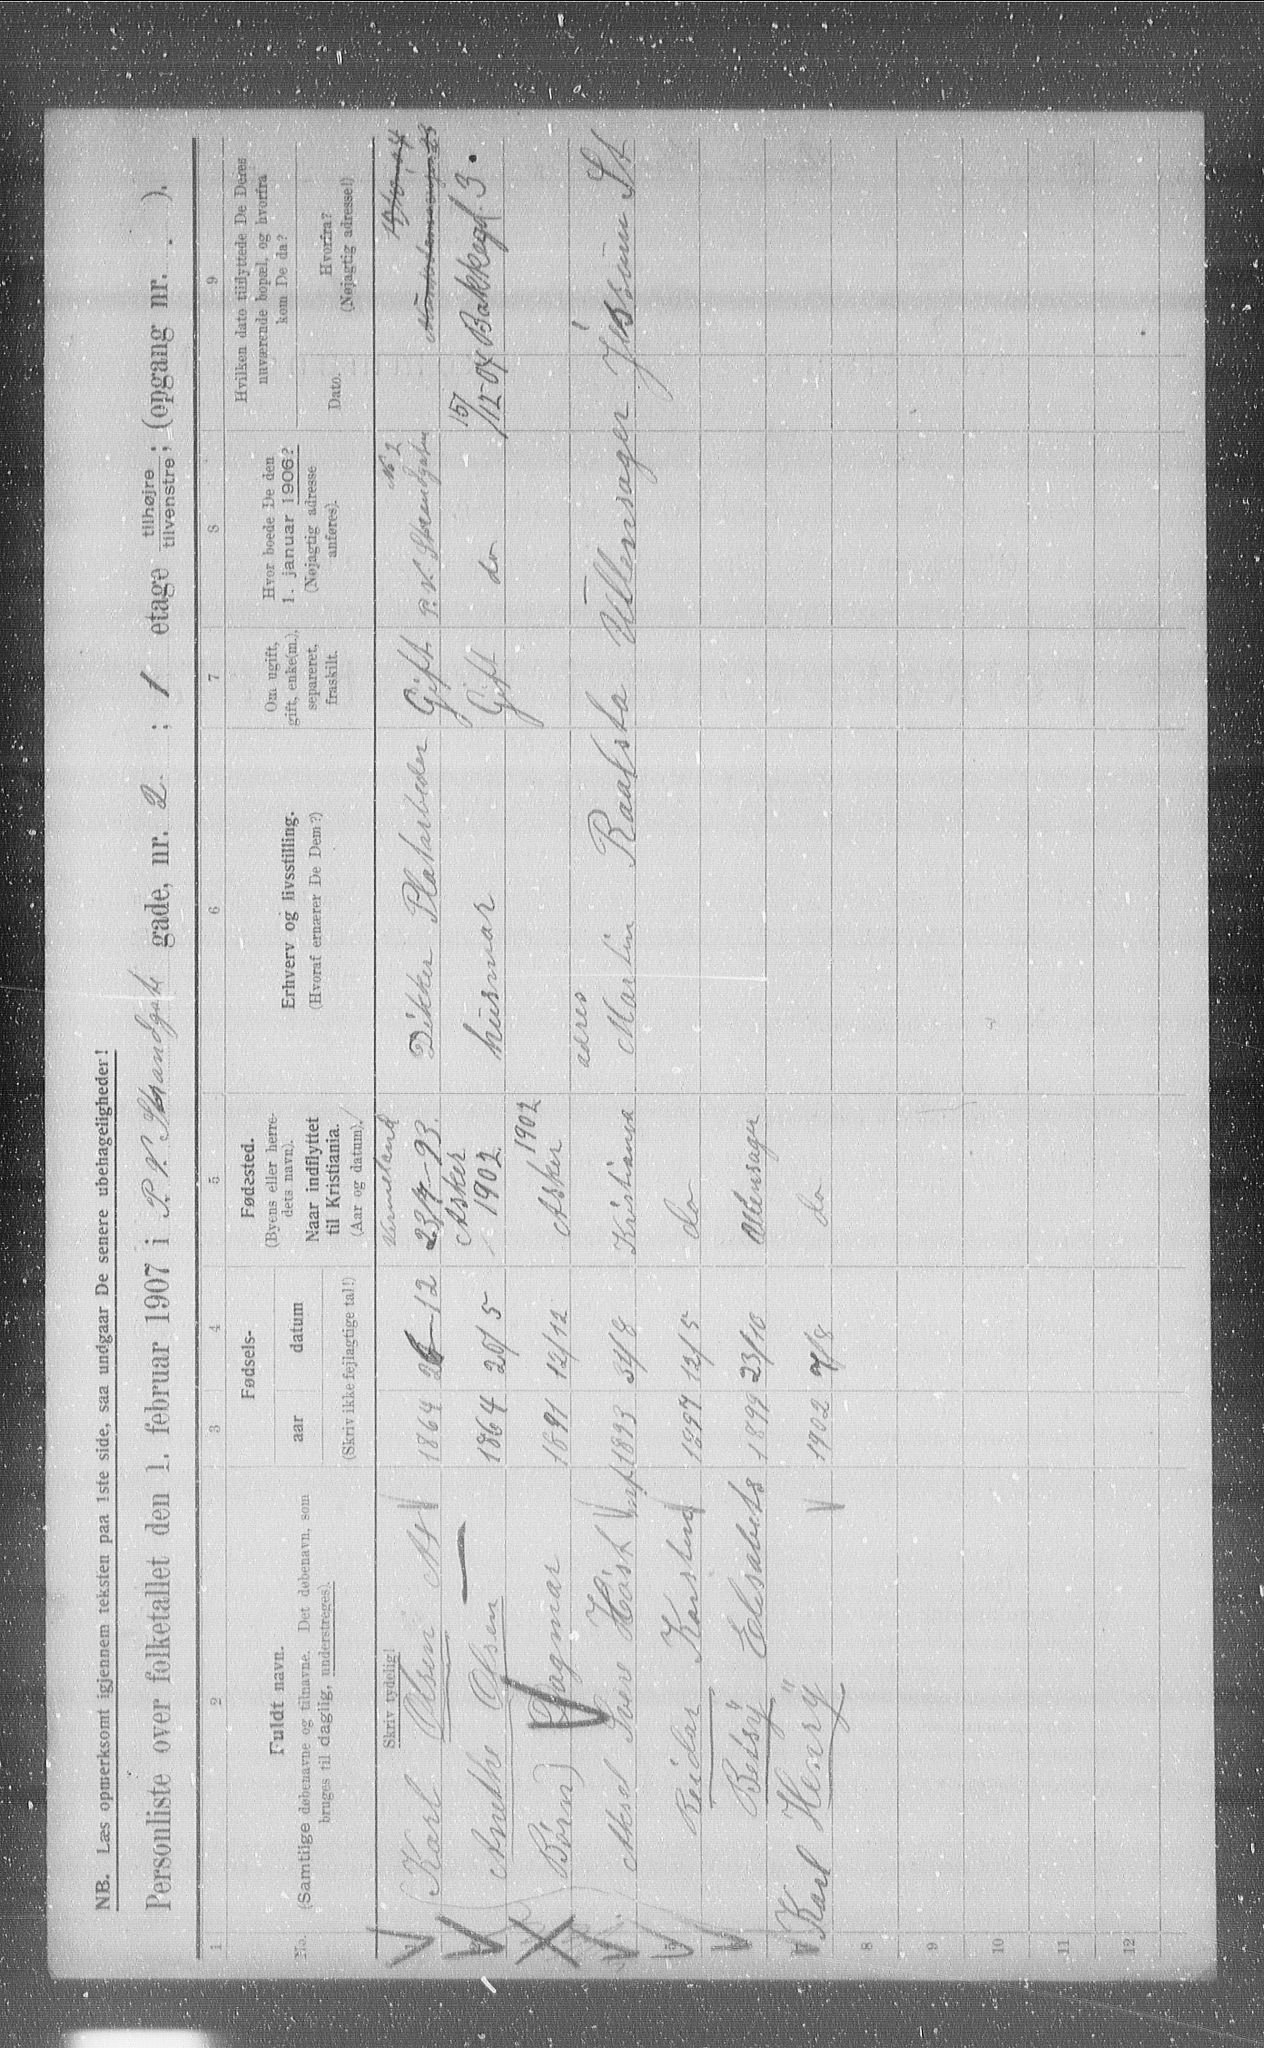 NB. Læs opmerksomt igjennem teksten paa 1ste side, saa undgaar De senere ubehageligheder!
Personliste over folketallet den 1. februar 1907 i P. V. Strandgate gade, nr. 2. ; 1 etage tilhøjre ; tilvenstre ; (opgang nr. ).
1 2 3 4 5 6 7 8 9
No.
Fuldt navn.
(Samtlige døbenavne og tilnavne. Det døbenavn, som
bruges til daglig, understreges).
Fødsels-
aar datum
(Skriv ikke fejlagtige tal!)
Fødested.
(Byens eller herre-
dets navn).
Naar indflyttet
til Kristiania.
(Aar og datum).
Erhverv og livsstilling.
(Hvoraf ernærer De Dem?)
Om ugift,
gift, enke(m.),
separeret,
fraskilt.
Hvor boede De den
1. januar 1906?
(Nøjagtig adresse
anføres).
Hvilken dato tilflyttede De Deres
nuværende bopæl, og hvorfra
kom De da?
Dato.
Hvorfra?
(Nøjagtig adresse!)
Skriv tydelig!
Vermeland No 2
Karl Olsen 1864 12 23/4-93. Dikker Gift P. V. Strandgaten
Asker
Anethe Olsen 1864 20/5 1902 husmor Gift do 15/12-04 Bakkegd. 3.
1902
Børn) Dagmar 1891 12/12 Asker
adres
Aksel Høst 1893 Kristiania Martin Raalsta Ullensager St
Reidar Karsten 1897 12/5 do
Betsÿ Elisabets 1899 23/10 Ullensager
Karl Henrÿ 1902 7/8 do
8
9
10
11
12